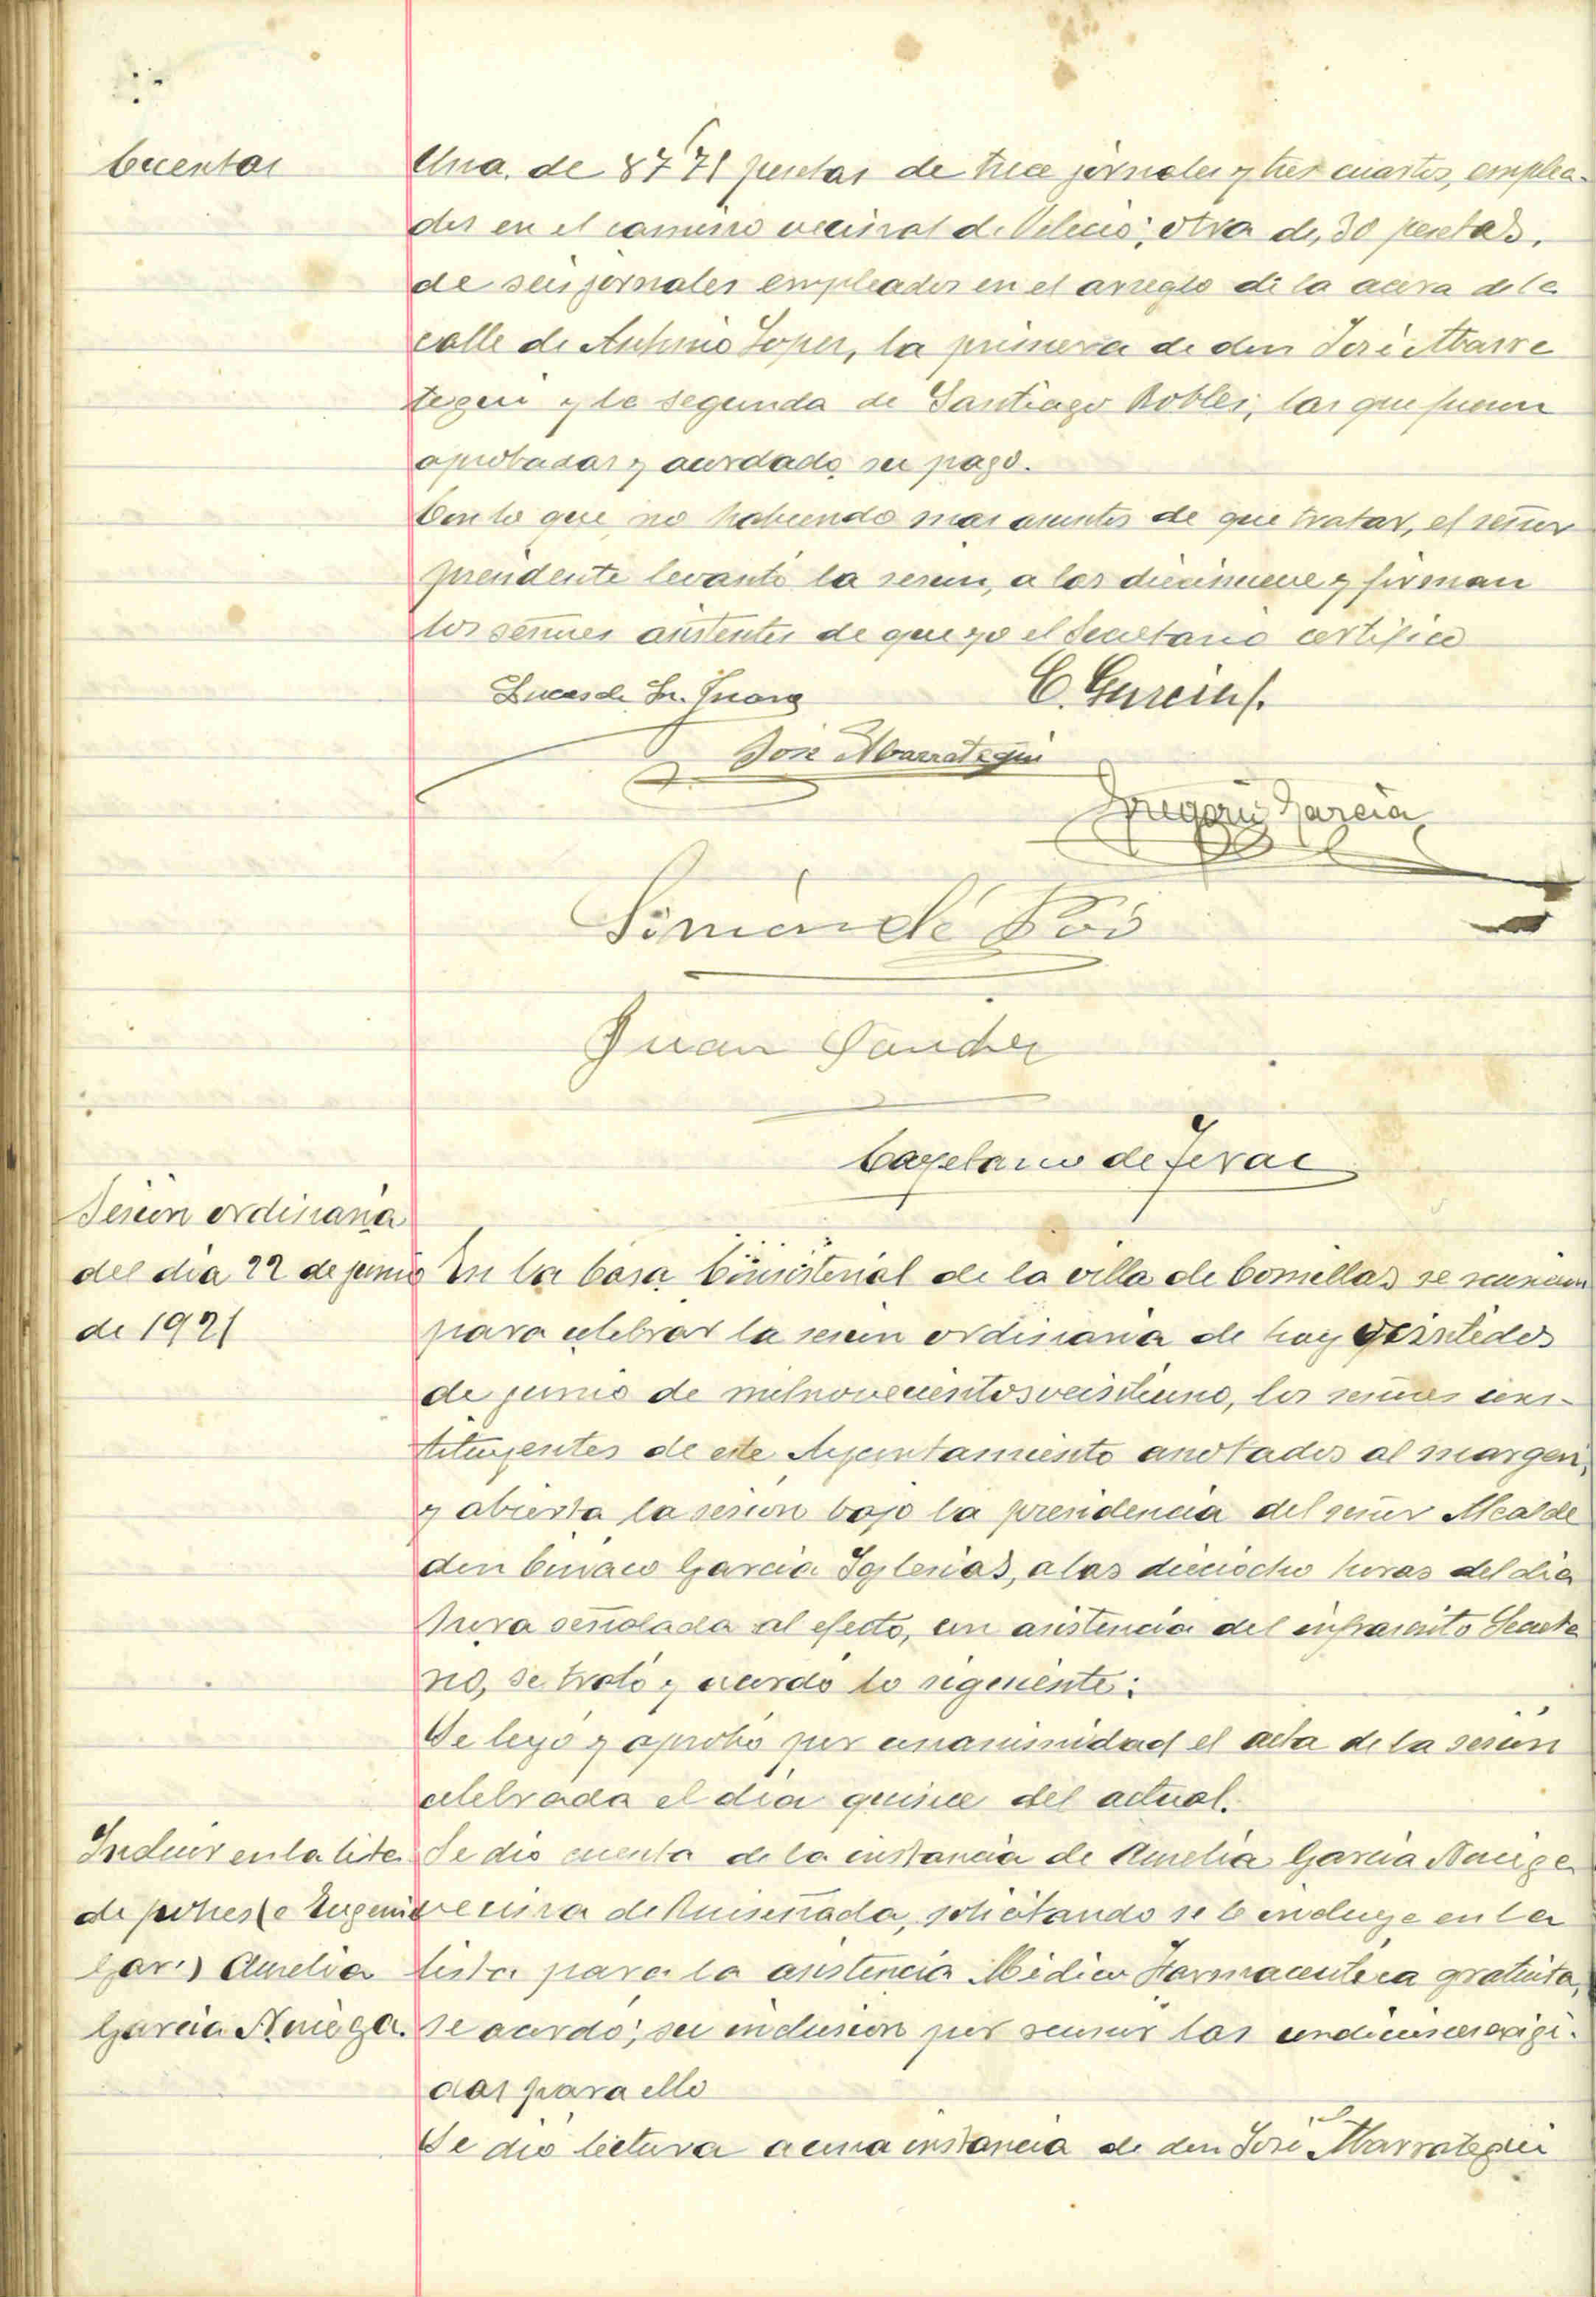 Cuentas
Una de 87 71 pesetas de trece jornales y tres cuartos, emplea-
dos en el camino vecinal de otra de 30 pesetas,
de seis jornales empleados en el arreglo de la acera de la
calle de Antonio Lopez, la primera de don José Abarra
tegui y la segunda de Santiago Robles, las que fueron
aprobadas y acordado su pago.
Con lo que no habiendo mas asuntos de que tratar, el señor
presidente levantó la sesion, a las diecinueve y firman
los señores asistentes de que yo el Secretario certifico
Lucas de Sn. Juan C. Garcia
José Abarrategui
Gregorio Garcia
Simón de Pos
Juan Sanchez
Cayetano de Teran
Sesion ordinaria
del dia 22 de junio
de 1921
En la Casa Consistorial de la villa de Comillas se reunieron
para celebrar la sesion ordinaria de hoy veintidos
de junio de milnovecientosveintiuno, los señores cons-
tituyentes de este Ayuntamiento anotados al margen,
y abierta la sesion bajo la presidencia del señor Alcalde
don Garcia Iglesias, a las dieciocho horas del dia
hora señalada al efecto, con asistencia del infrascrito Secreta
rio, se trató y acordó lo siguiente:
Se leyó y aprobó por unanimidad el acta de la sesion
celebrada el dia quince del actual.
Incluir en la lista
de pobres a Eugenio
Garc) Amelia
Garcia Noriega.
Se dió cuenta de la instancia de Amelia Garcia Noriega
vecina de Ruiseñada, solicitando se le incluya en la
lista para la asistencia Médico Farmaceutica gratuita,
se acordó, su inclusion por reunir las condiciones exigi-
das para ello
Se dió lectura a una instancia de don José Abarrategui